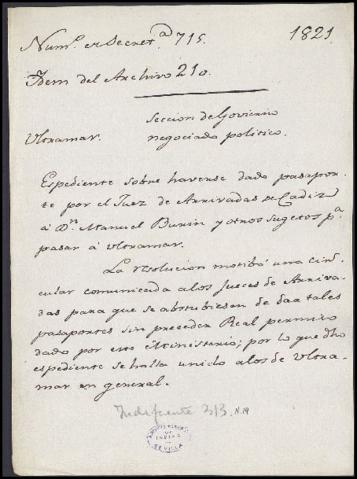 Num.º de Secret.ª 715. 1821
Idem del Archivo 210.
Seccion de Govierno
Ultramar. negociado politico.
Espediente sobre haverse dado pasapor-
te por el Juez de Arrivadas de Cadiz
á Dn. Manuel Bunin y otros sugetos pª
pasar á Ultramar.
La resolucion motibó una cir-
cular comunicada alos Jueces de Arriva-
das para que se abstubiesen de dar tales
pasaportes sin preceder Real permiso
dado por este Ministerio; por lo que dho
espediente se halla unido alos de Ultra-
mar en general.
Indiferente 313. N.19
INDIAS
SEVILLA